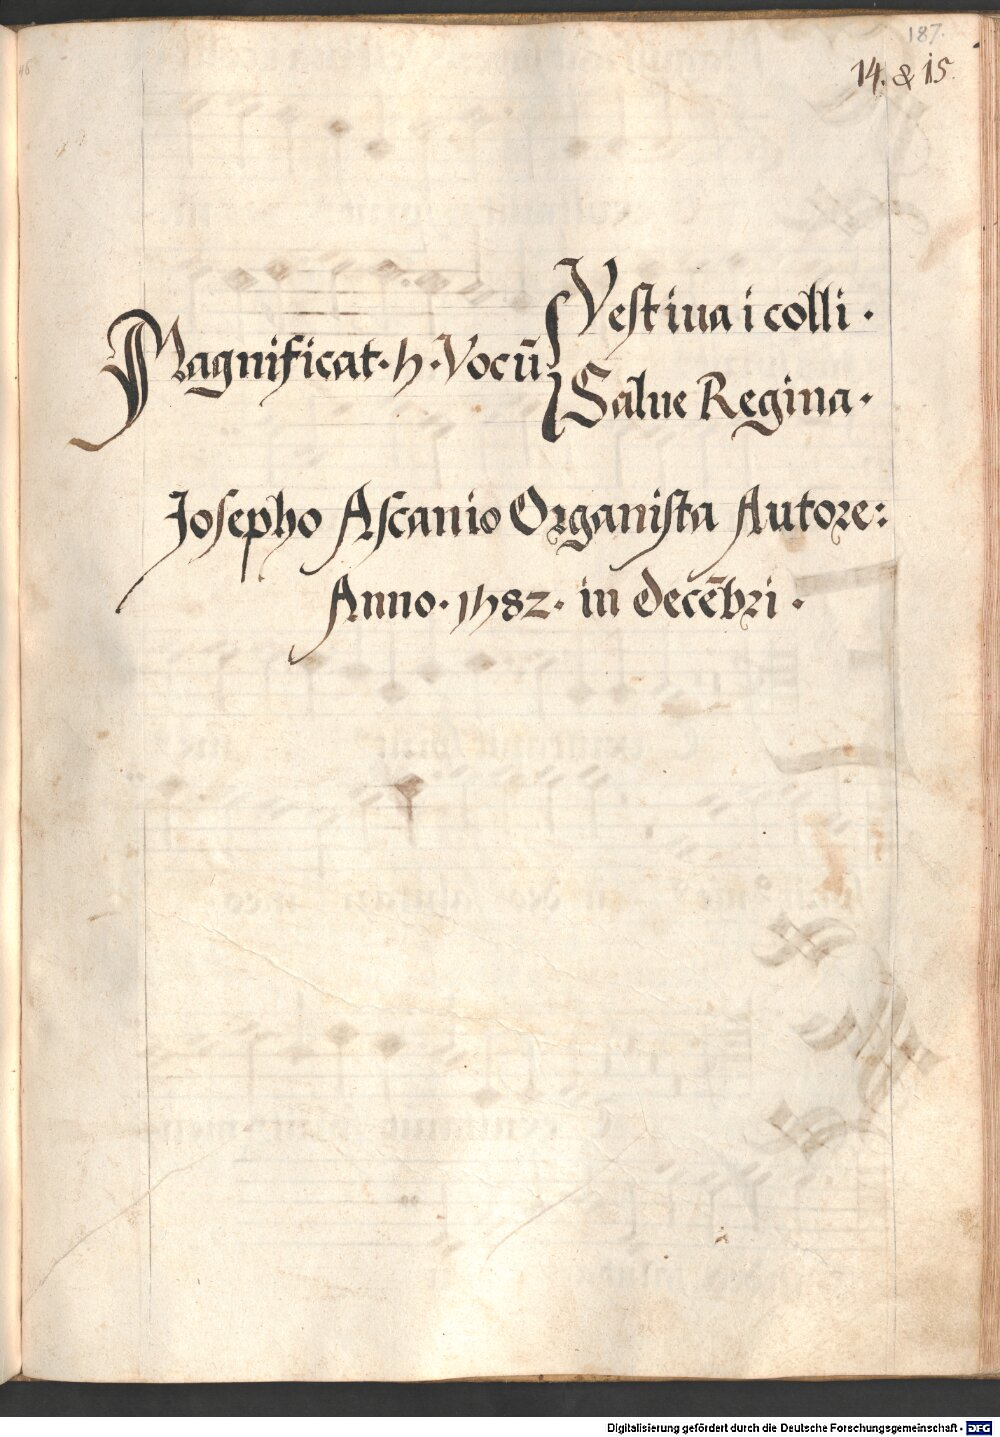 187.
14. & 15.
Vestiua i colli.
Magnificat. 5. Vocũ
Salue Regina.
Josepho Ascanio Organista Autore:
Anno. 1582. in decẽbri.
Digitalisierung gefördert durch die Deutsche Forschungsgemeinschaft - DFG